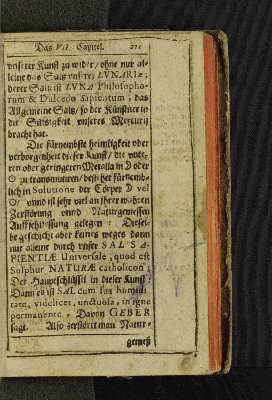 Das VII. Capitel. 271
vnserer Kunst zu wider / ohne nur al-
leine das Saltz vnserer LVNARIÆ,
derer Saltz ist LVNA Philosopho-
rum & Dulcedo sapientum, das
Allgemeine Saltz / so der Künstler in
die Süssigkeit vnseres Mercurij
bracht hat.
Die fürnembste heimligkeit oder
verborgenheit dieser Kunst / die vnte-
ren oder geringeren Metalla in ☽ oder
☉ zu transmutiren / bestehet fürnemb-
lich in Solutione der Cörper ☽ vel
☉ / vnnd ist sehr viel an ihrer wahren
Zerstörung vnnd Naturgemessen
Auffschliessung gelegen. Diesel-
be geschicht aber keines weges dann
nur alleine durch vnser SAL SA-
PIENTIÆ Universale, quod est
Sulphur NATURÆ catholicon
Der Hauptschlüssel in dieser Kunst
Dann es ist SAL cum sua humidi-
tate, videlicet, unctuosa, in igne
permanente, Davon GEBER
sagt. Also zerstöret man Natur-
gemeß